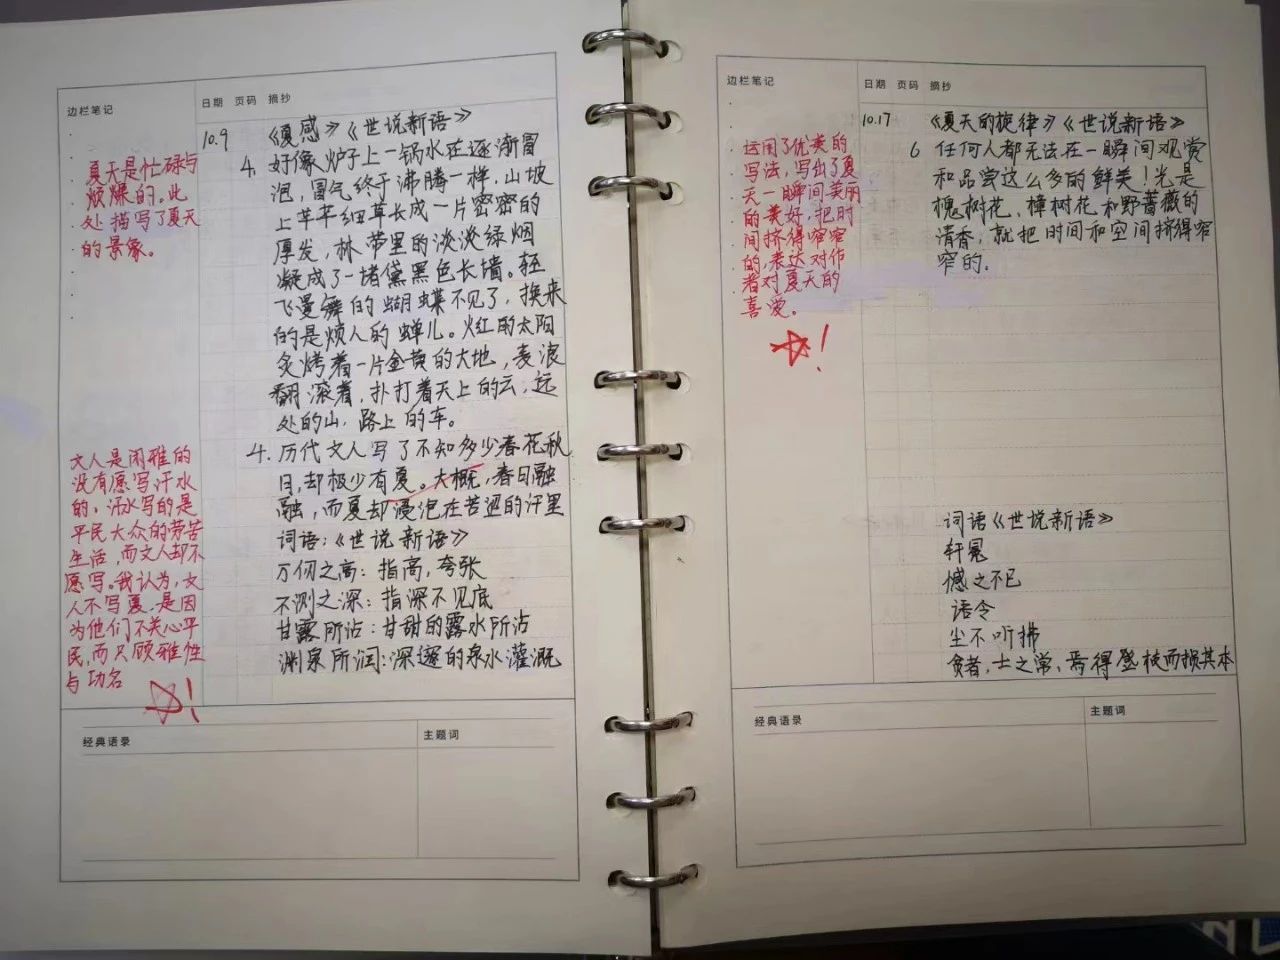 边栏笔记
日期 页码 摘抄
10.9
《夏感》《世说新语》
4. 好像炉子上一锅水在逐渐冒
泡，冒气终于沸腾一样，山坡
上芊芊细草长成一片密密的
厚发，林带里的淡淡绿烟
凝成了一堵黛黑色长墙。轻
飞曼舞的蝴蝶不见了，换来
的是烦人的蝉儿。火红的太阳
炙烤着一片金黄的大地，麦浪
翻滚着，扑打着天上的云，远
处的山，路上的车。
4. 历代文人写了不知多少春花秋
月，却极少有夏。大概，春日融
融，而夏却浸泡在苦涩的汗里
词语：《世说新语》
万仞之高：指高，夸张
不测之深：指深不见底
甘露所沾：甘甜的露水所沾
渊泉所润：深邃的泉水灌溉
夏天是忙碌与
烦燥的。此
处描写了夏天
的景像。
文人是闲雅的
没有愿写汗水
的，汗水写的是
平民大众的劳苦
生活，而文人却不
愿写。我认为，文
人不写夏，是因
为他们不关心平
民，而只顾雅性
与功名
！
经典语录
主题词
边栏笔记
日期 页码 摘抄
10.17
《夏天的旋律》《世说新语》
6 任何人都无法在一瞬间观赏
和品尝这么多的鲜美！光是
槐树花、樟树花和野蔷薇的
清香，就把时间和空间挤得窄
窄的。
运用了优美的
写法，写出了夏
天一瞬间美丽
的美好，把时
间挤得窄窄
的，表达对作
者对夏天的
喜爱。
！
词语《世说新语》
轩冕
憾之不已
语令
尘不听拂
贫者，士之常，焉得登枝而损其本
经典语录
主题词